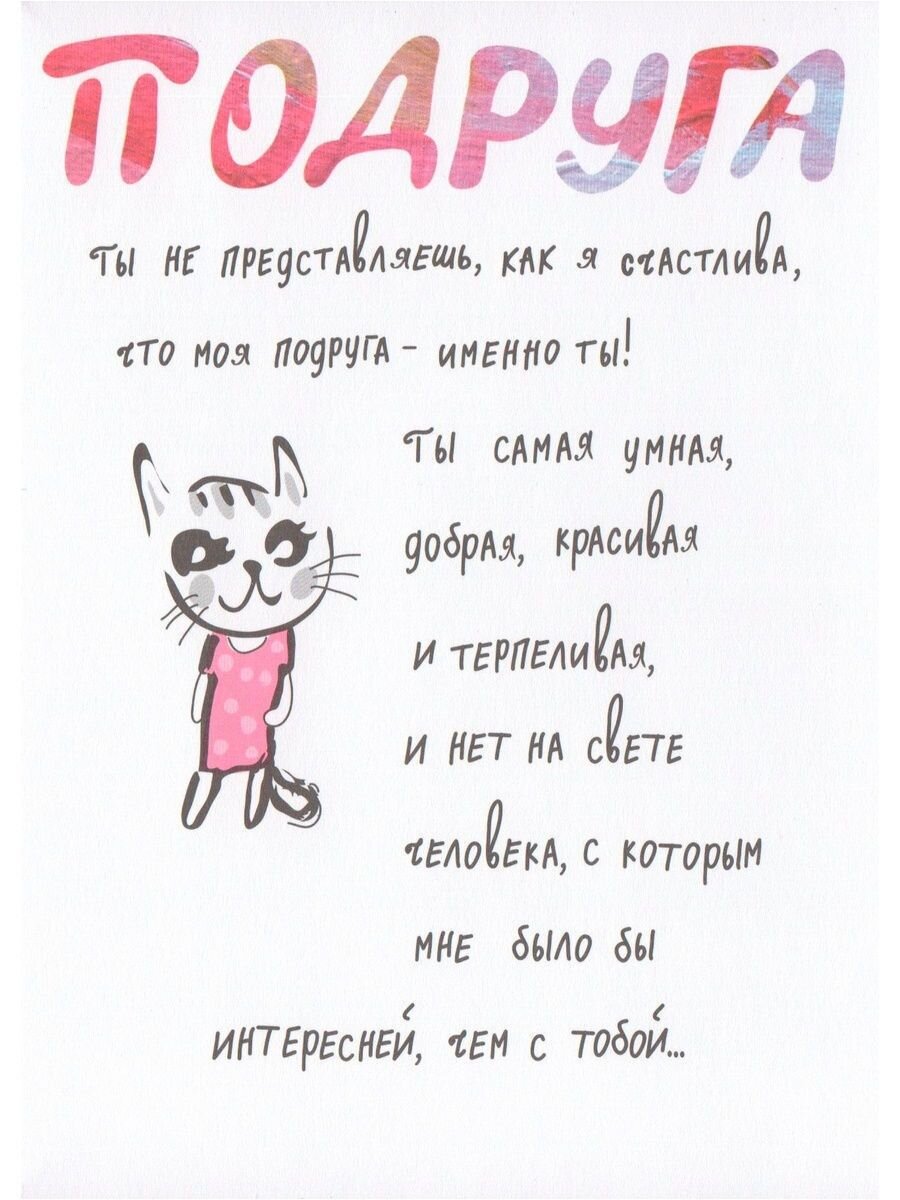 ПОДРУГА
ТЫ НЕ ПРЕДСТАВЛЯЕШЬ, КАК Я СЧАСТЛИВА,
ЧТО МОЯ ПОДРУГА - ИМЕННО ТЫ!
ТЫ САМАЯ УМНАЯ,
ДОБРАЯ, КРАСИВАЯ
И ТЕРПЕЛИВАЯ,
И НЕТ НА СВЕТЕ
ЧЕЛОВЕКА, С КОТОРЫМ
МНЕ БЫЛО БЫ
ИНТЕРЕСНЕЙ, ЧЕМ С ТОБОЙ...